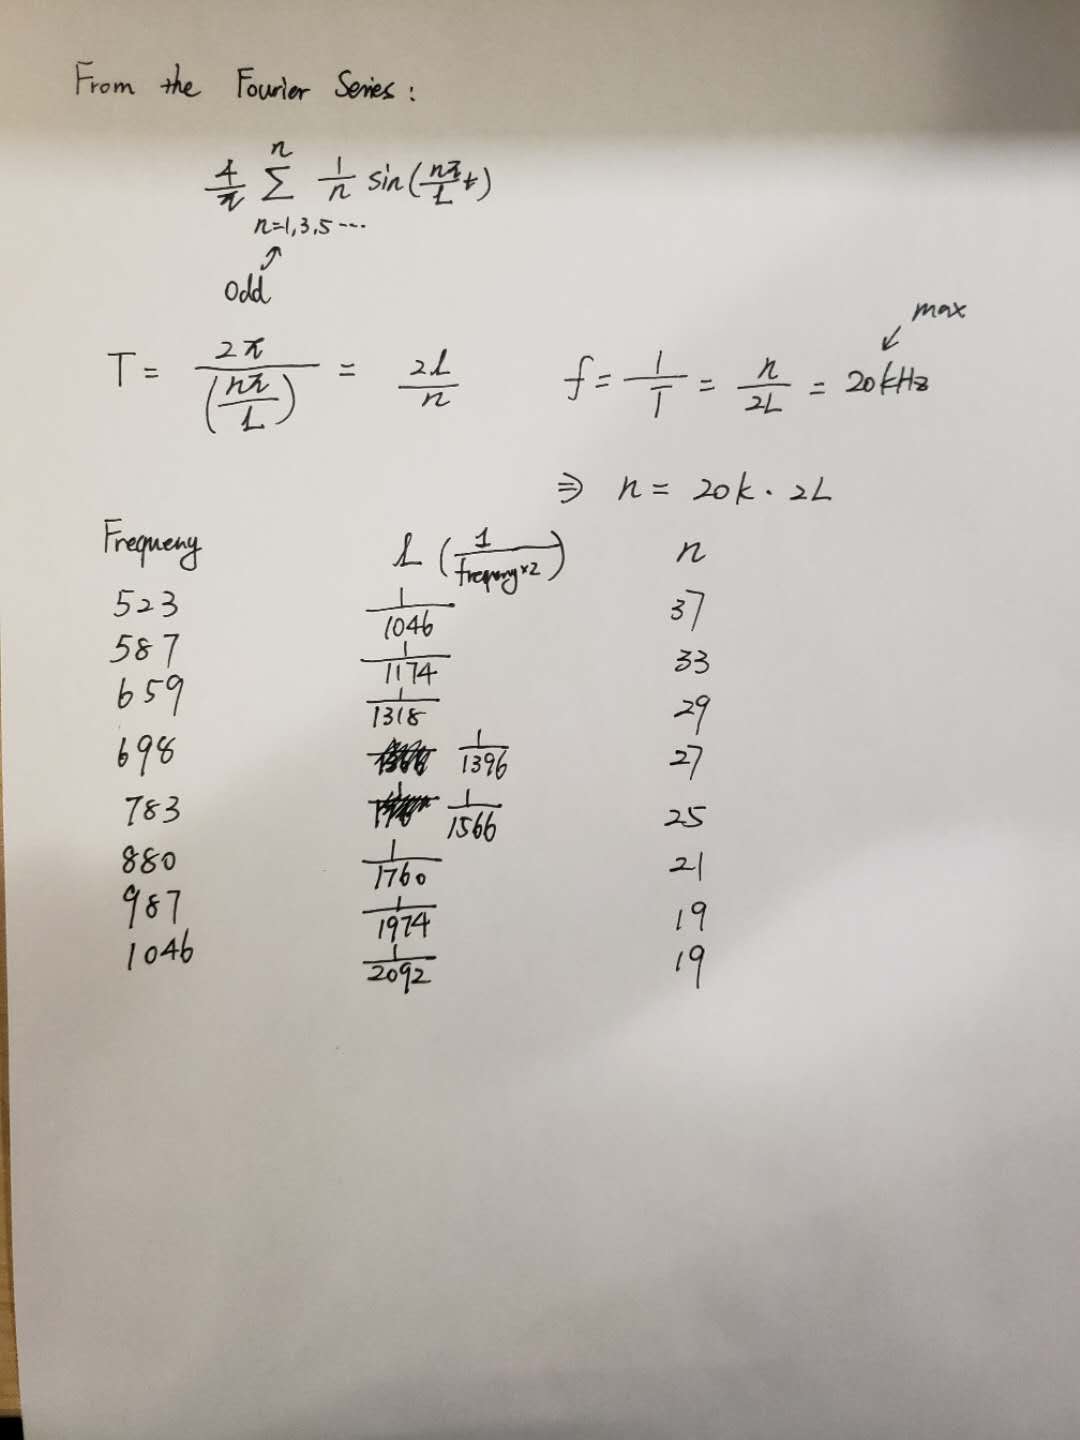 From the Fourier Series:
4/π Σ (n=1,3,5 ...)^n 1/n sin(nπ/L t)
odd
max
T = 2π/(nπ/L) = 2L/n f = 1/T = n/2L = 20kHz
⇒ n = 20k · 2L
Frequeny L (1/frequeny×2) n
523 1/1046 37
587 1/1174 33
659 1/1318 29
698 1/1396 27
783 1/1566 25
880 1/1760 21
987 1/1974 19
1046 1/2092 19